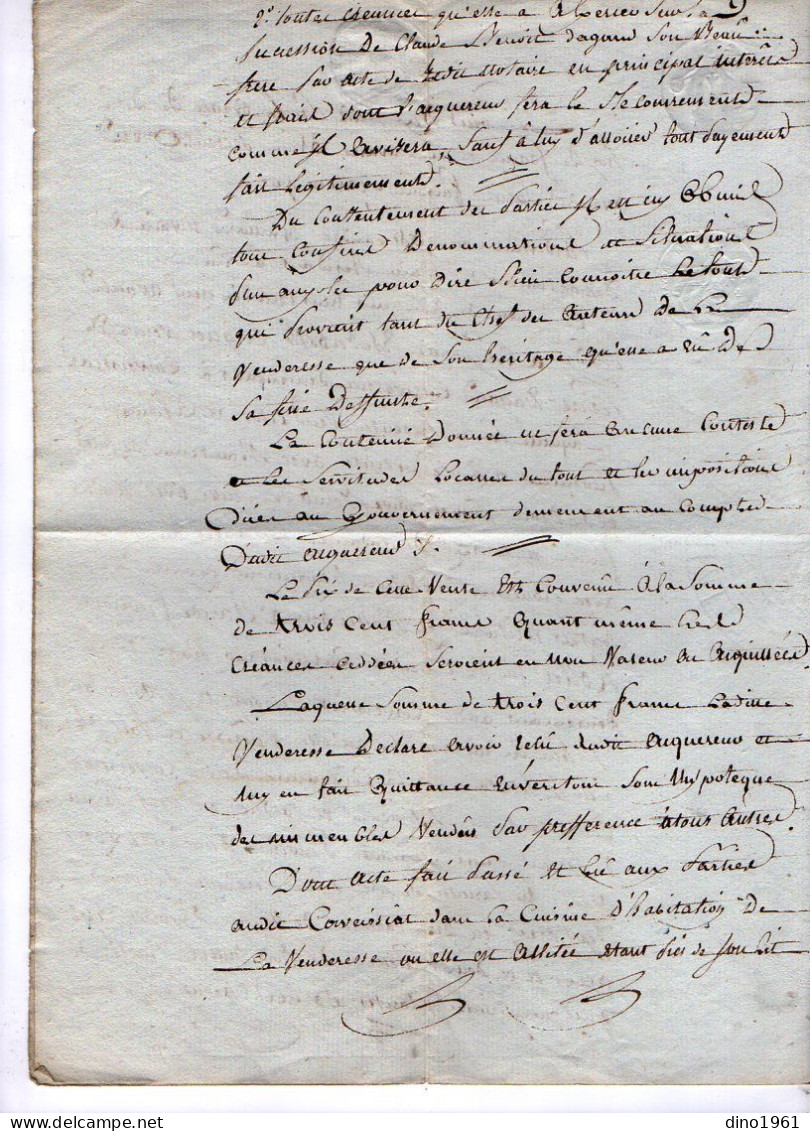 2° toutes creances qu'elle a a Exercer sur la
succession De Claude Benoit dagand son
frere par acte de notaire en principal interêts
et frais dont l'acquereur fera le recouvrement
comme Il avisera, sauf à luy d'allouer tout payement
fait legitimement.
Du Consentement des parties Il est icy obmis
tous confins Denominations et situations
pour dire bien connoitre Le tout
qui provient tant du Chef des auteurs de La
Venderesse que de son heritage qu'elle a eû De
sa fille Deffunte.
La Contenüe donnée ne fera aucune Conteste
et les Servitudes Locales du tout et les impositions
dües au Gouvernement demeurent au Compte
Dudit acquereur.
Le prix de cette Vente Est Convenû à la somme
de trois Cent francs quant même les
Créances ceddées seroient en non Valeur ou acquittées.
Laquelle somme de trois Cent francs Laditte
Venderesse Declare avoir reçû dudit acquereur et
luy en fait quittance sous Hypoteque
des immeubles Vendus par prefference à tous autres.
Dont acte fait passé et lu aux parties
audit Corveissiat dans la Cuisine d'habitation De
La Venderesse ou elle est allitée etant près de son lit
dino1961